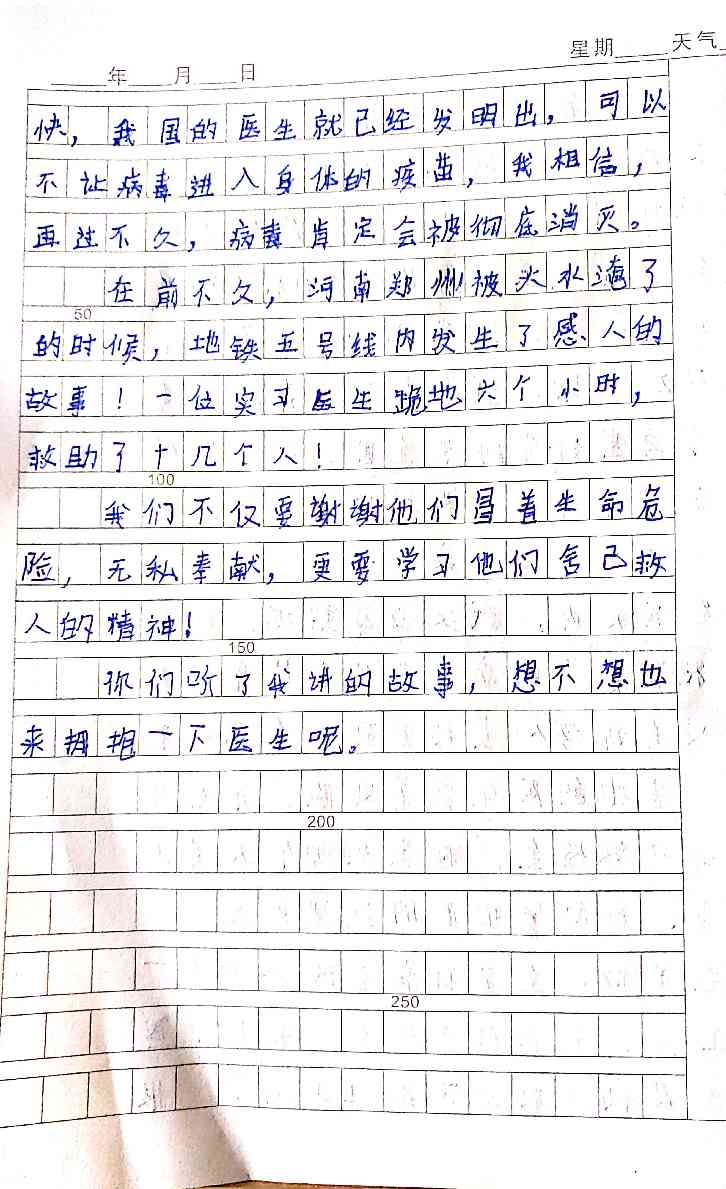 星期 天气
年 月 日
快，我国的医生就已经发明出，可以
不让病毒进入身体的疫苗，我相信，
再过不久，病毒肯定会被彻底消灭。
在前不久，河南郑州被大水淹了
50
的时候，地铁五号线内发生了感人的
故事！一位实习医生跪地六个小时，
救助了十几个人！
100
我们不仅要谢谢他们冒着生命危
险，无私奉献，更要学习他们舍己救
人的精神！
150
你们听了我讲的故事，想不想也
来拥抱一下医生呢。
200
250